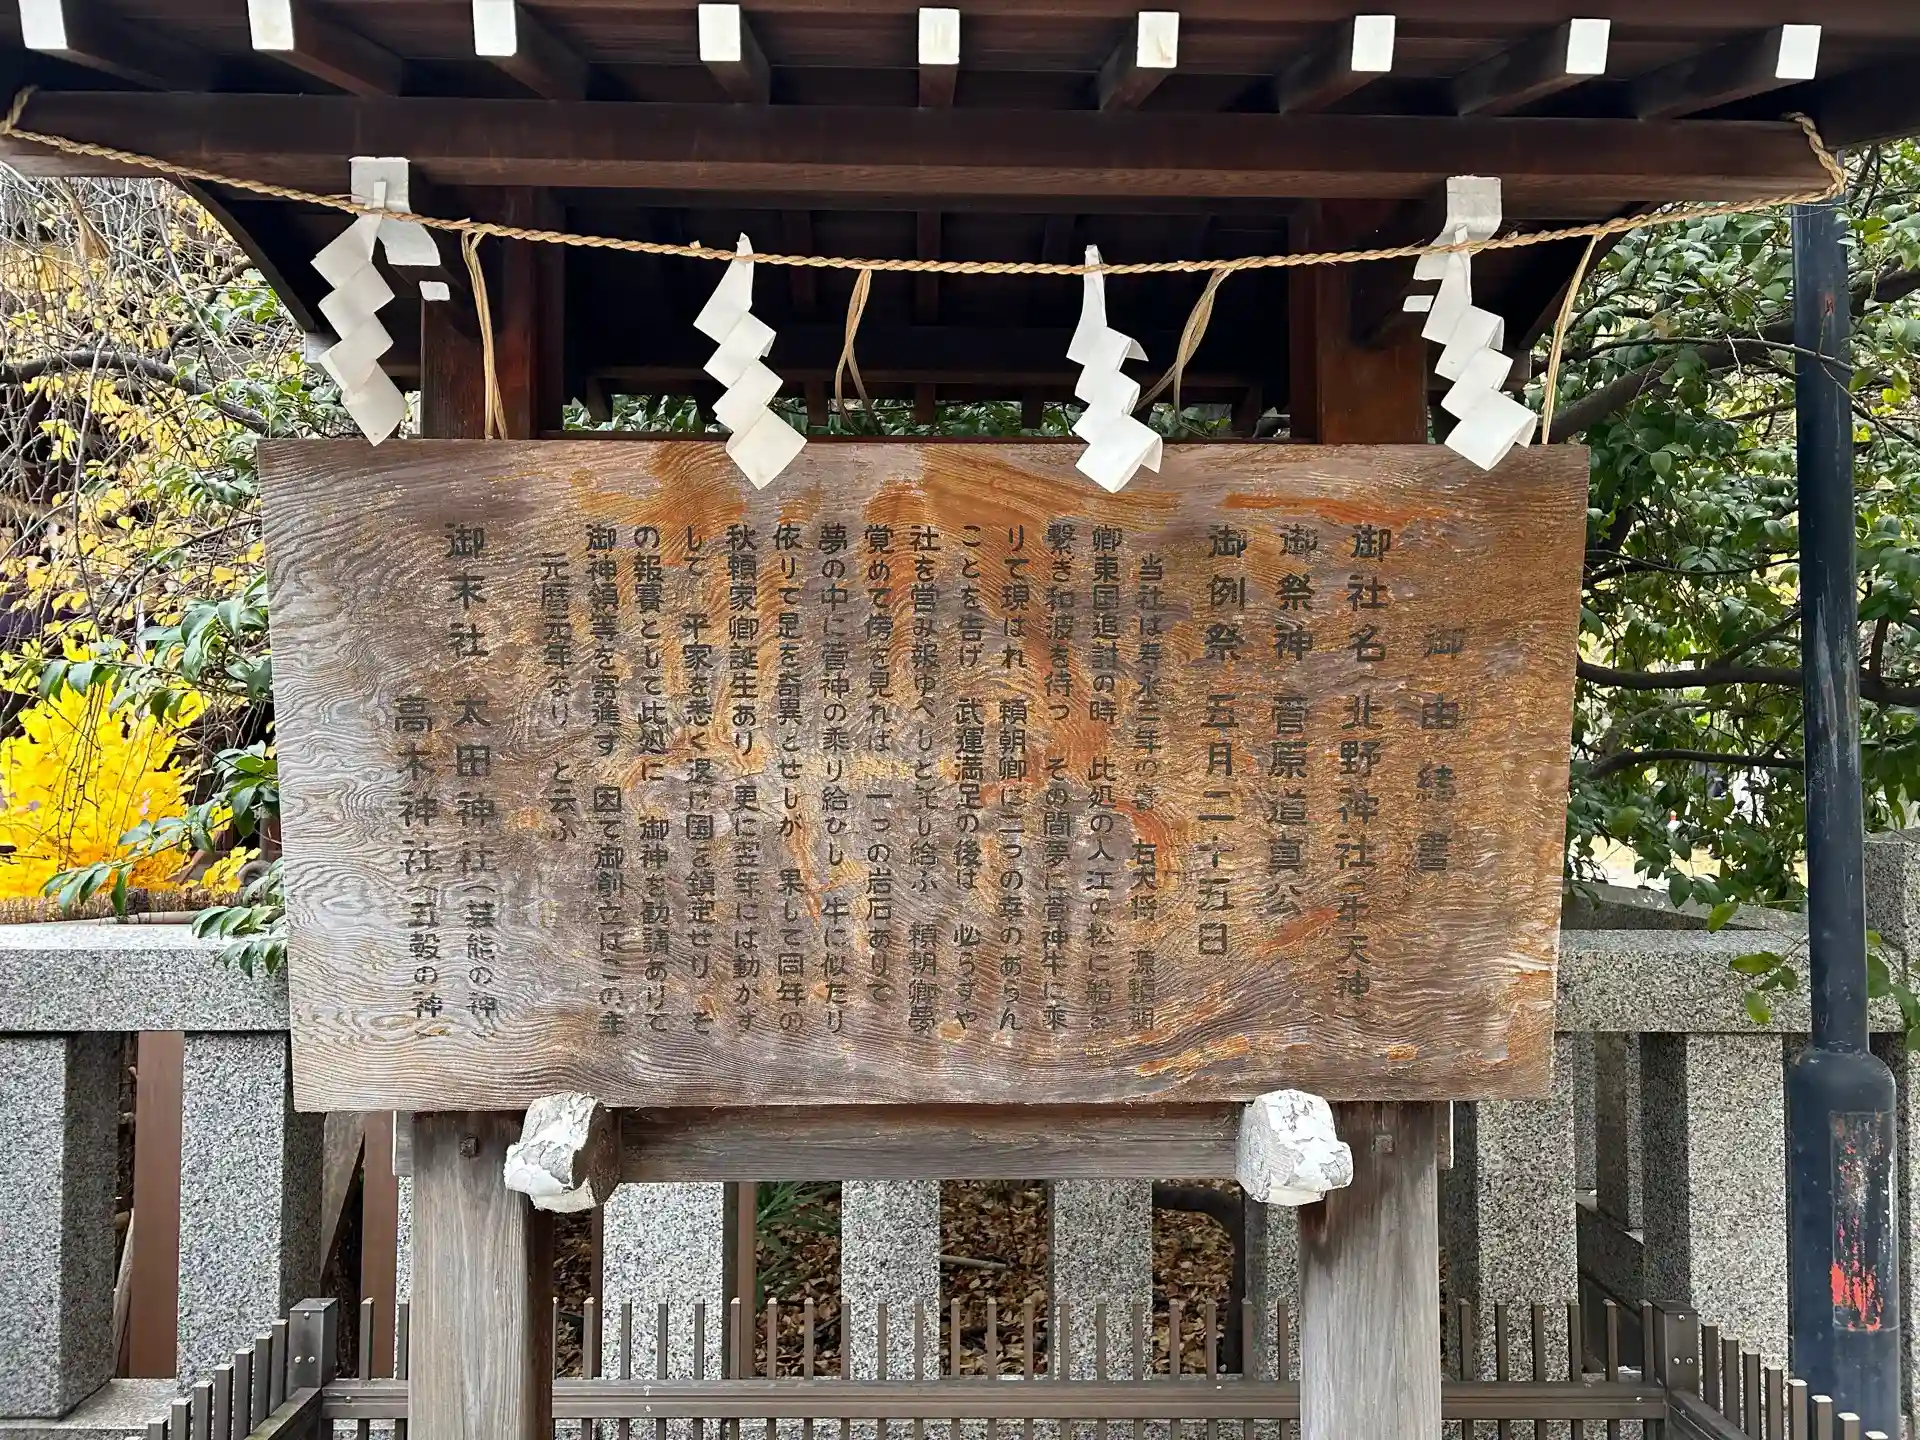 御由緒書
御社名 北野神社(牛天神)
御祭神 菅原道真公
御例祭 五月二十五日
当社は寿永三年の春 右大将 源頼朝
卿東国追討の時 此処の入江の松に船を
繋ぎ和波を待つ その間夢に菅神牛に乗
りて現はれ 頼朝卿に二つの幸のあらん
ことを告げ 武運満足の後は 必らずや
社を営み報ゆべしと托し給ふ 頼朝卿夢
覚めて傍を見れば 一つの岩石ありて
夢の中に菅神の乗り給ひし 牛に似たり
依りて是を奇異とせしが 果して同年の
秋頼家卿誕生あり 更に翌年には動かず
して 平家を悉く退け国を鎮定せり そ
の報賽として此処に 御神を勧請ありて
御神領等を寄進す 因て御創立はこの主
元暦元年なり と云ふ
御末社 太田神社(芸能の神)
高木神社(五穀の神)